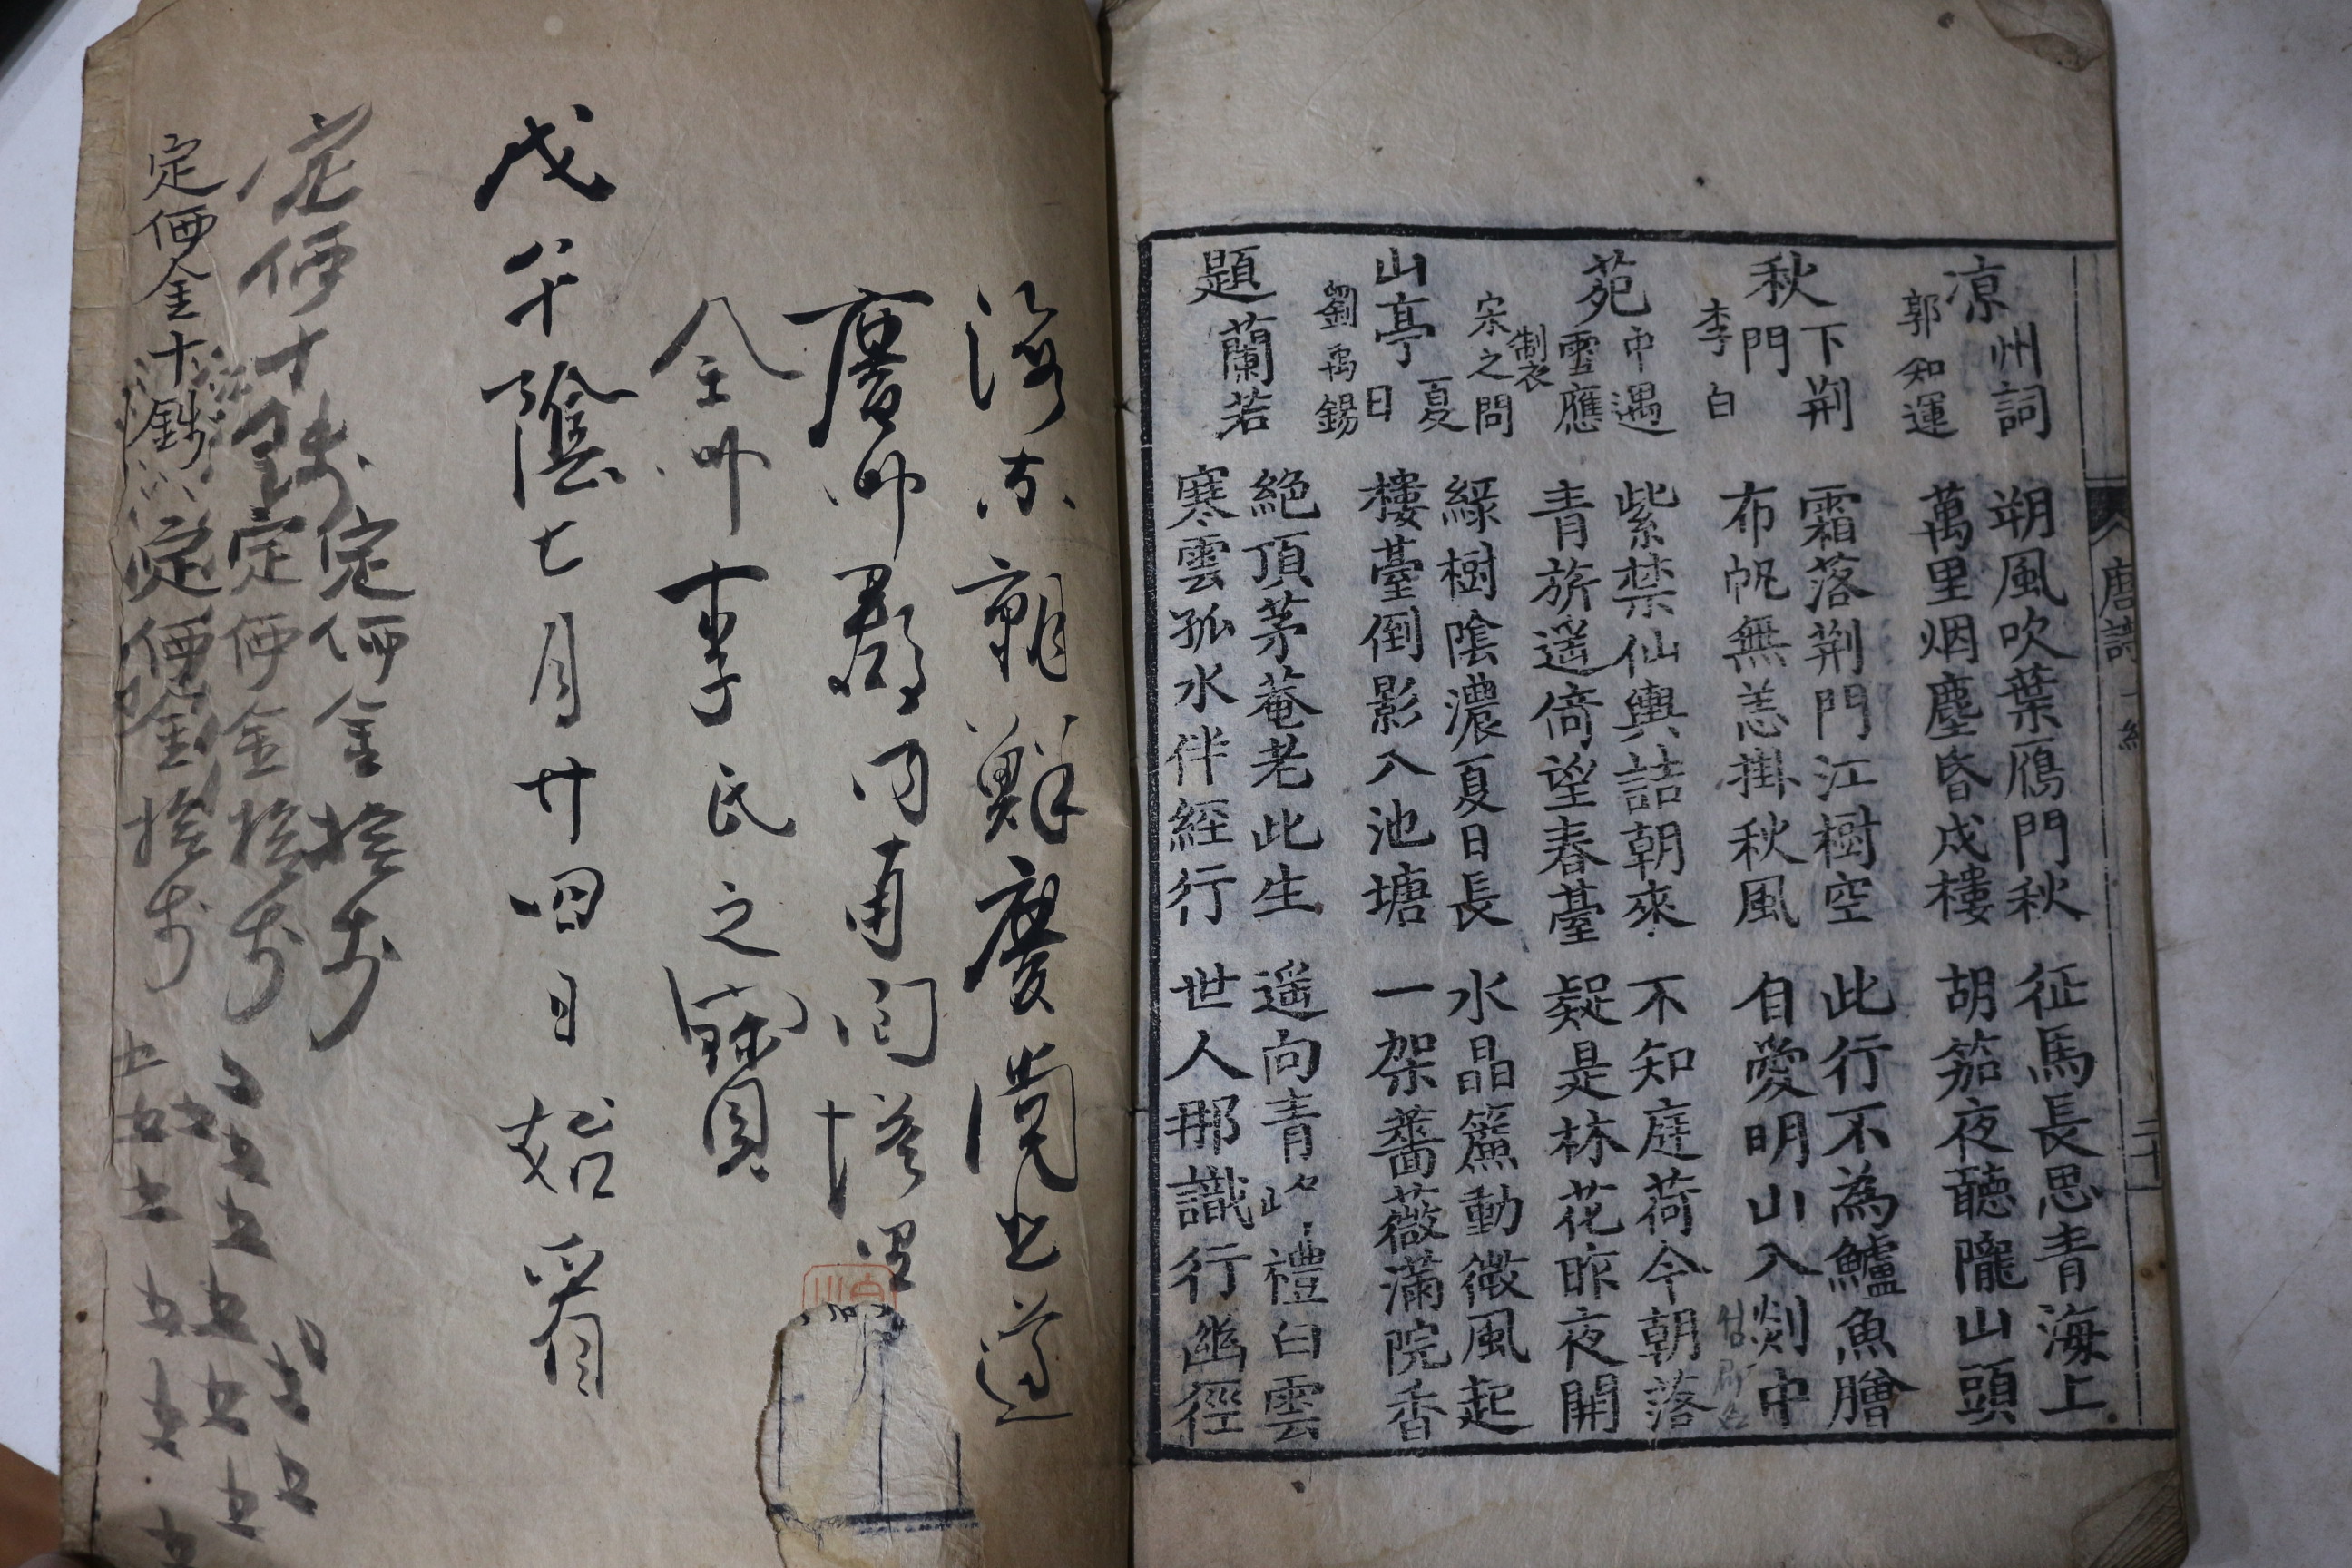 唐詩
二十
凉州詞
郭知運
朔風吹葉鴈門秋
萬里烟塵昏戍樓
征馬長思青海上
胡笳夜聽隴山頭
秋下荆門
李白
霜落荆門江樹空
布帆無恙掛秋風
此行不為鱸魚膾
自愛明山入剡中
苑中遇雪應制
宋之問
紫禁仙輿詰朝來
青旂遥倚望春臺
不知庭荷今朝落
疑是林花昨夜開
山亭夏日
劉禹錫
緑樹陰濃夏日長
樓臺倒影入池塘
水晶簾動微風起
一架薔薇滿院香
題蘭若
絶頂茅菴老此生
寒雲孤水伴經行
遥向青山禮白雲
世人那識行幽徑
海東朝鮮慶尚北道
慶州郡内南面
李氏之寶
戊午陰七月廿四日始看
定価十
定価金拾戋
定価金拾戋
定価金十銭
定価金拾戋